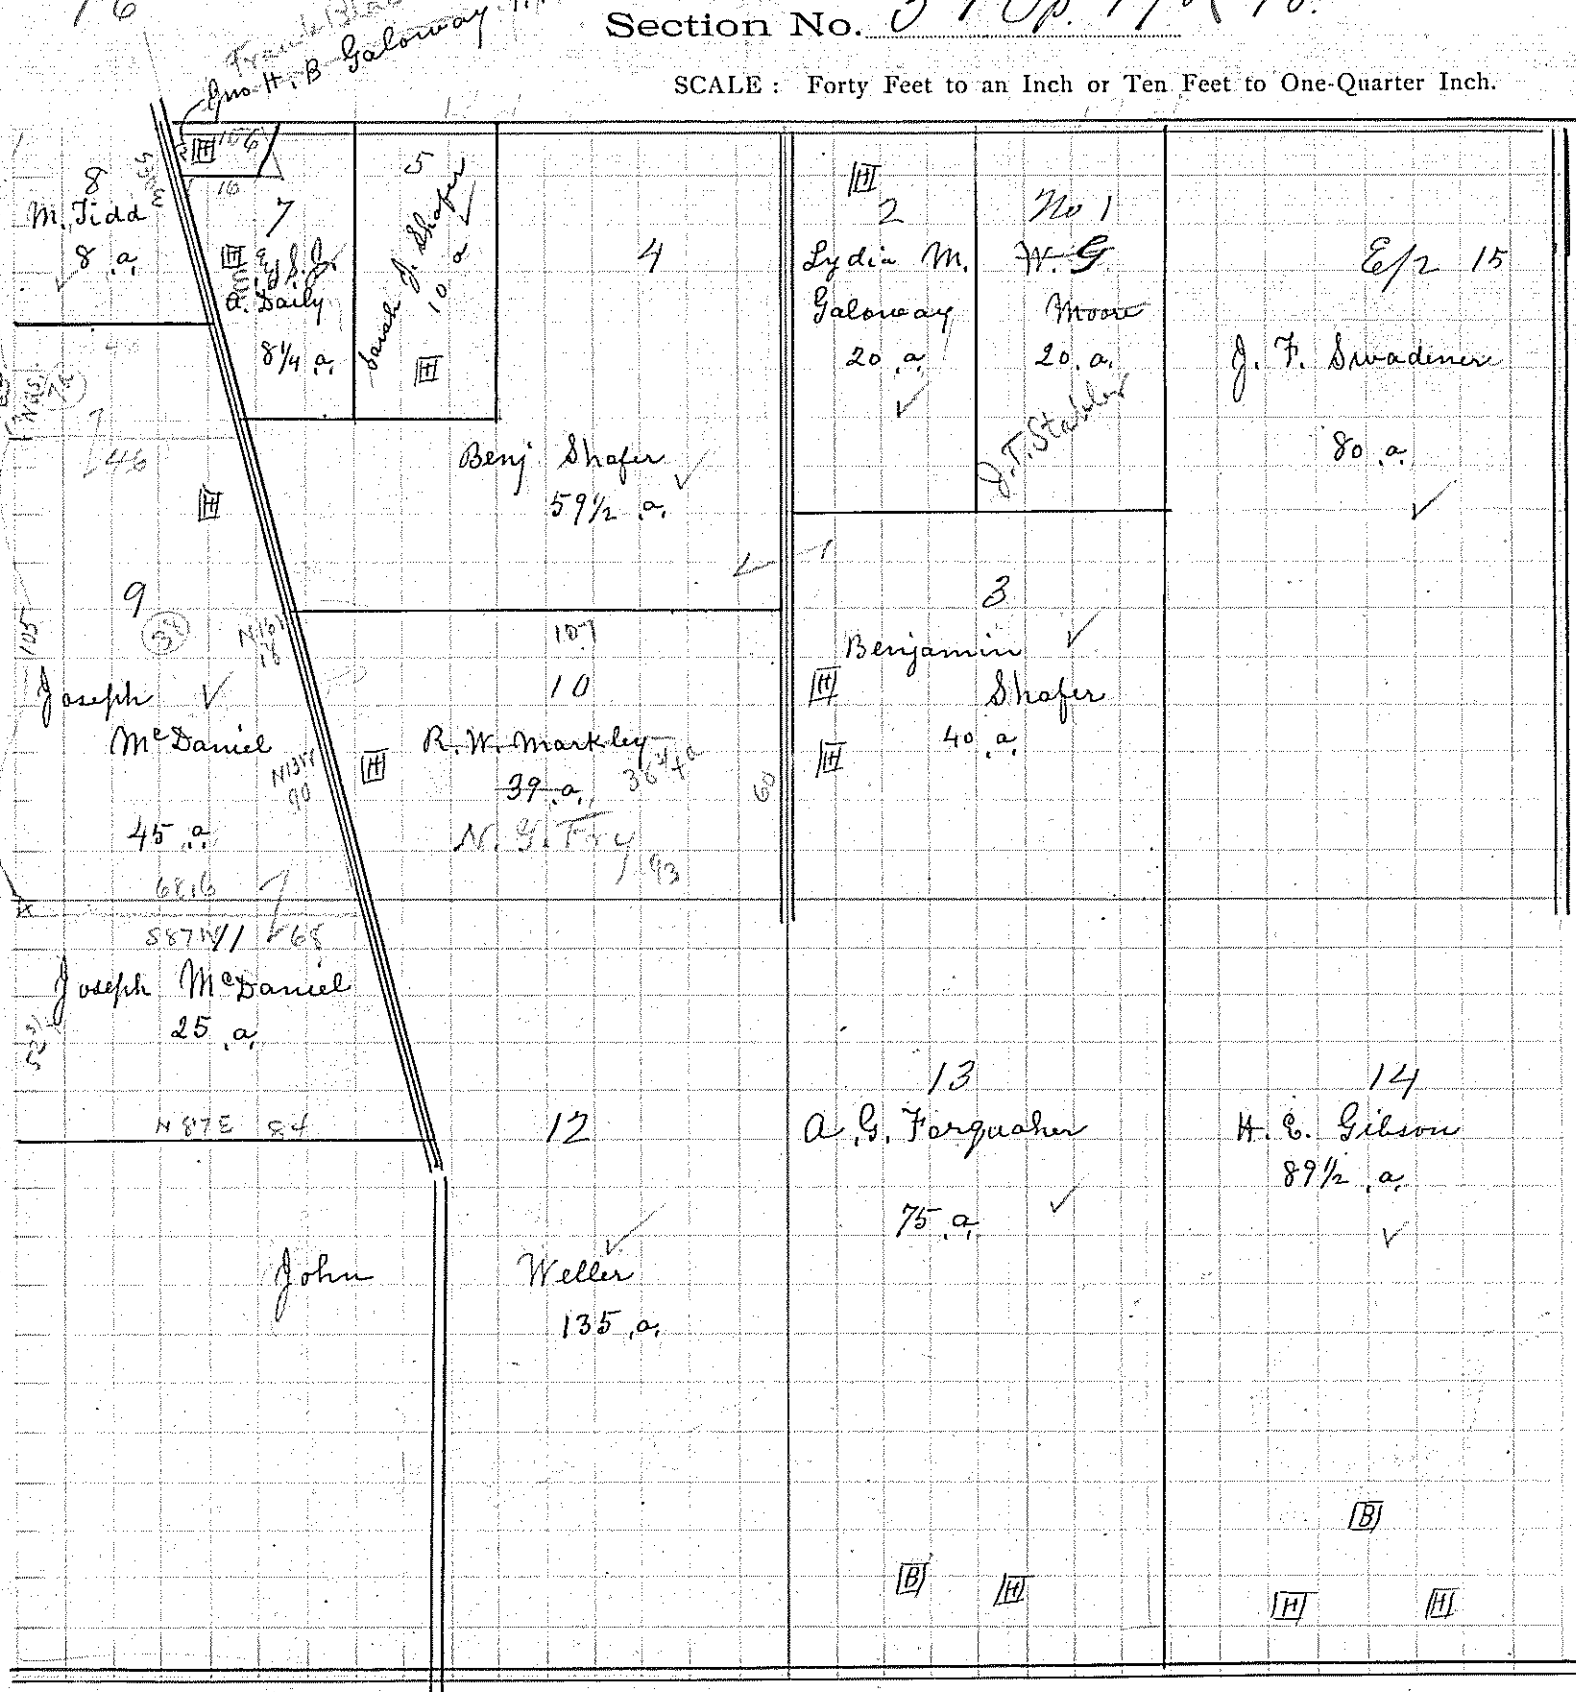 Section No.
SCALE : Forty Feet to an Inch or Ten Feet to One-Quarter Inch.
Jno. H. B Galoway
8
M. Tidd
8 a.
7
S. J.
A. Daily
8 1/4 a.
5
Sarah J. Shafer
10 a
4
Benj Shafer
59 1/2 a.
2
Lydia M.
Galoway
20 a.
No 1
W. G
Moore
20. a.
J. T. Stabler
E/2 15
J. F. Swadener
80 a.
46
9
105
Joseph
McDaniel
45 a.
107
10
R. W. Markley
39 a. 36 3/4 a
N. G. Fry
93
60
3
Benjamin
Shafer
40 a.
68
Joseph McDaniel
25 a.
N 87 E 84
12
John Weller
135 a.
13
A. G. Farquaher
75 a.
14
H. E. Gibson
89 1/2 a.
H
H
H
H
H
H
H
H
B
B
H
H
H